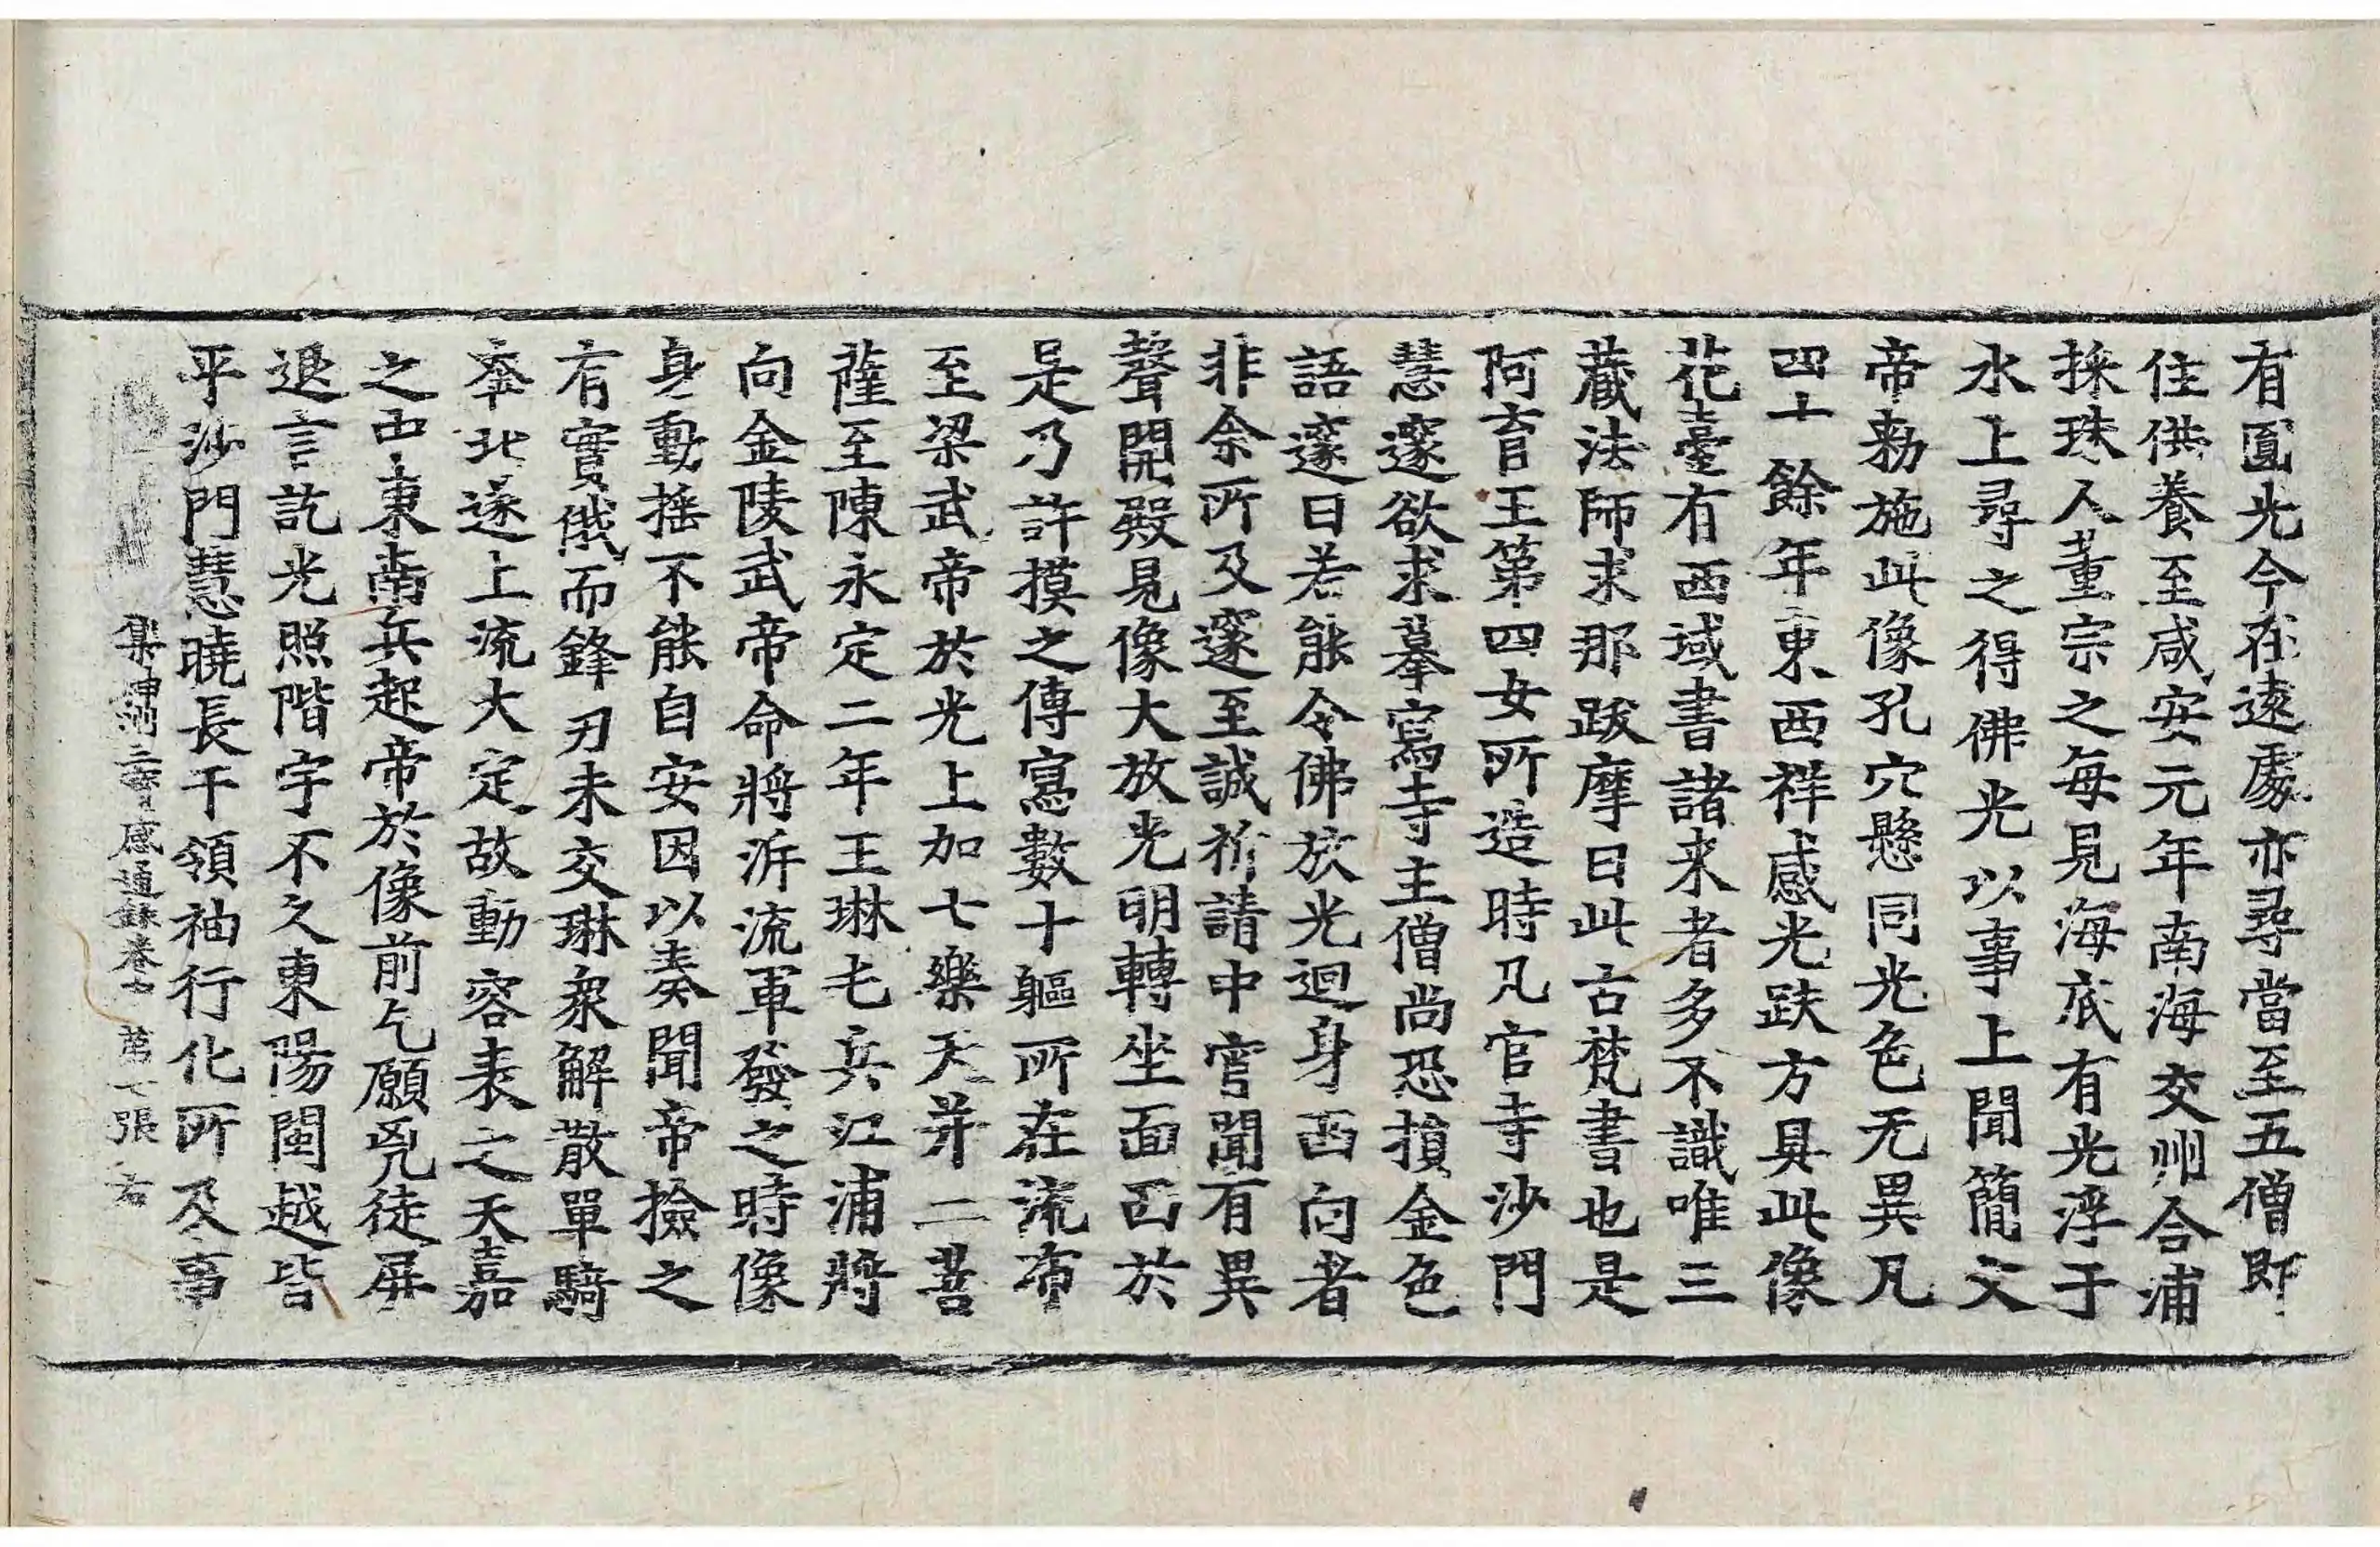 有圎光今在遠處亦尋當至五僧即
住供養至咸安元年南海交州合浦
採珠人董宗之每見海底有光浮于
水上尋之得佛光以事上聞簡文
帝勑施此像孔穴懸同光色无異凡
四十餘年東西祥感光趺方具此像
花臺有西域書諸来者多不識唯三
藏法師求那跋摩曰此古梵書也是
阿育王第四女所造時凡官寺沙門
慧邃欲求摹寫寺主僧尚恐損金色
語邃曰若能令佛放光迴身西向者
非余所及邃至誠祈請中宵聞有異
聲開殿見像大放光明轉坐面西於
是乃許摸之傳寫數十軀所在流布
至梁武帝於光上加七樂天并二菩
薩至陳永定二年王琳屯兵江浦將
向金陵武帝命將泝流軍發之時像
身動摇不能自安因以奏聞帝撿之
有實俄而鋒刃未交琳衆解散單騎
奔北遂上流大定故動容表之天嘉
之中東南兵起帝於像前乞願兇徒屏
退言訖光照階宇不久東陽閩越皆
平沙門慧曉長干領袖行化所及事
集神州三寶感通録卷士 苐七張